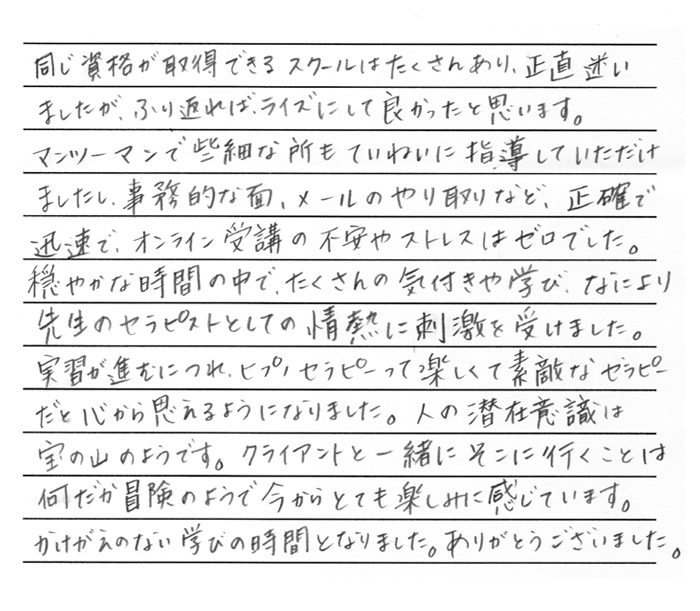 同じ資格が取得できるスクールはたくさんあり、正直迷い
ましたが、ふり返れば、ライズにして良かったと思います。
マンツーマンで些細な所もていねいに指導していただけ
ましたし、事務的な面、メールのやり取りなど、正確で
迅速で、オンライン受講の不安やストレスはゼロでした。
穏やかな時間の中で、たくさんの気付きや学び、なにより
先生のセラピストとしての情熱に刺激を受けました。
実習が進むにつれ、ヒプノセラピーって楽しくて素敵なセラピー
だと心から思えるようになりました。人の潜在意識は
宝の山のようです。クライアントと一緒にそこに行くことは
何だか冒険のようで今からとても楽しみに感じています。
かけがえのない学びの時間となりました。ありがとうございました。